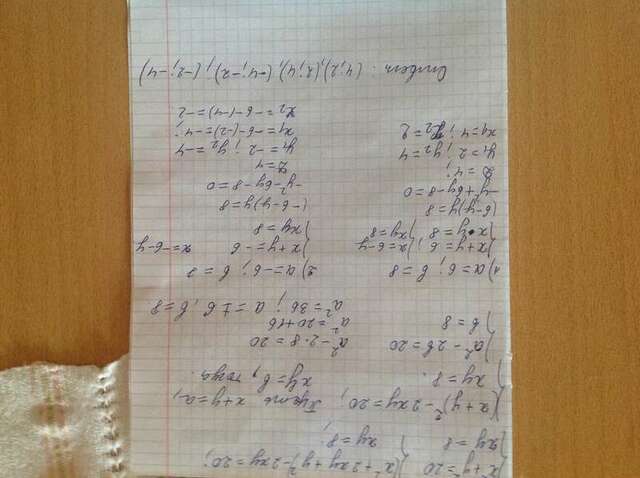 {x²+y²=20 {(x²+2xy+y²)-2xy=20;
xy=8 xy=8;
{(x+y)²-2xy=20, Пусть x+y=a,
xy=8. xy=b, тогда.
{a²-2b=20 a²-2·8=20
b=8 a²=20+16
a²=36; a=±6, b=8
1) a=6; b=8
{x+y=6; {x=6-y
x·y=8 xy=8
(6-y)y=8
-y²+6y-8=0
D=4;
y₁=2; y₂=4
x₁=4; x₂=2
2) a=-6; b=8
{x+y=-6 x=-6-y
xy=8
(-6-y)y=8
-y²-6y-8=0
D=4
y₁=-2; y₂=-4
x₁=-6-(-2)=-4;
x₂=-6-(-4)=-2
Ответ: (4;2),(2;4),(-4;-2),(-2;-4)